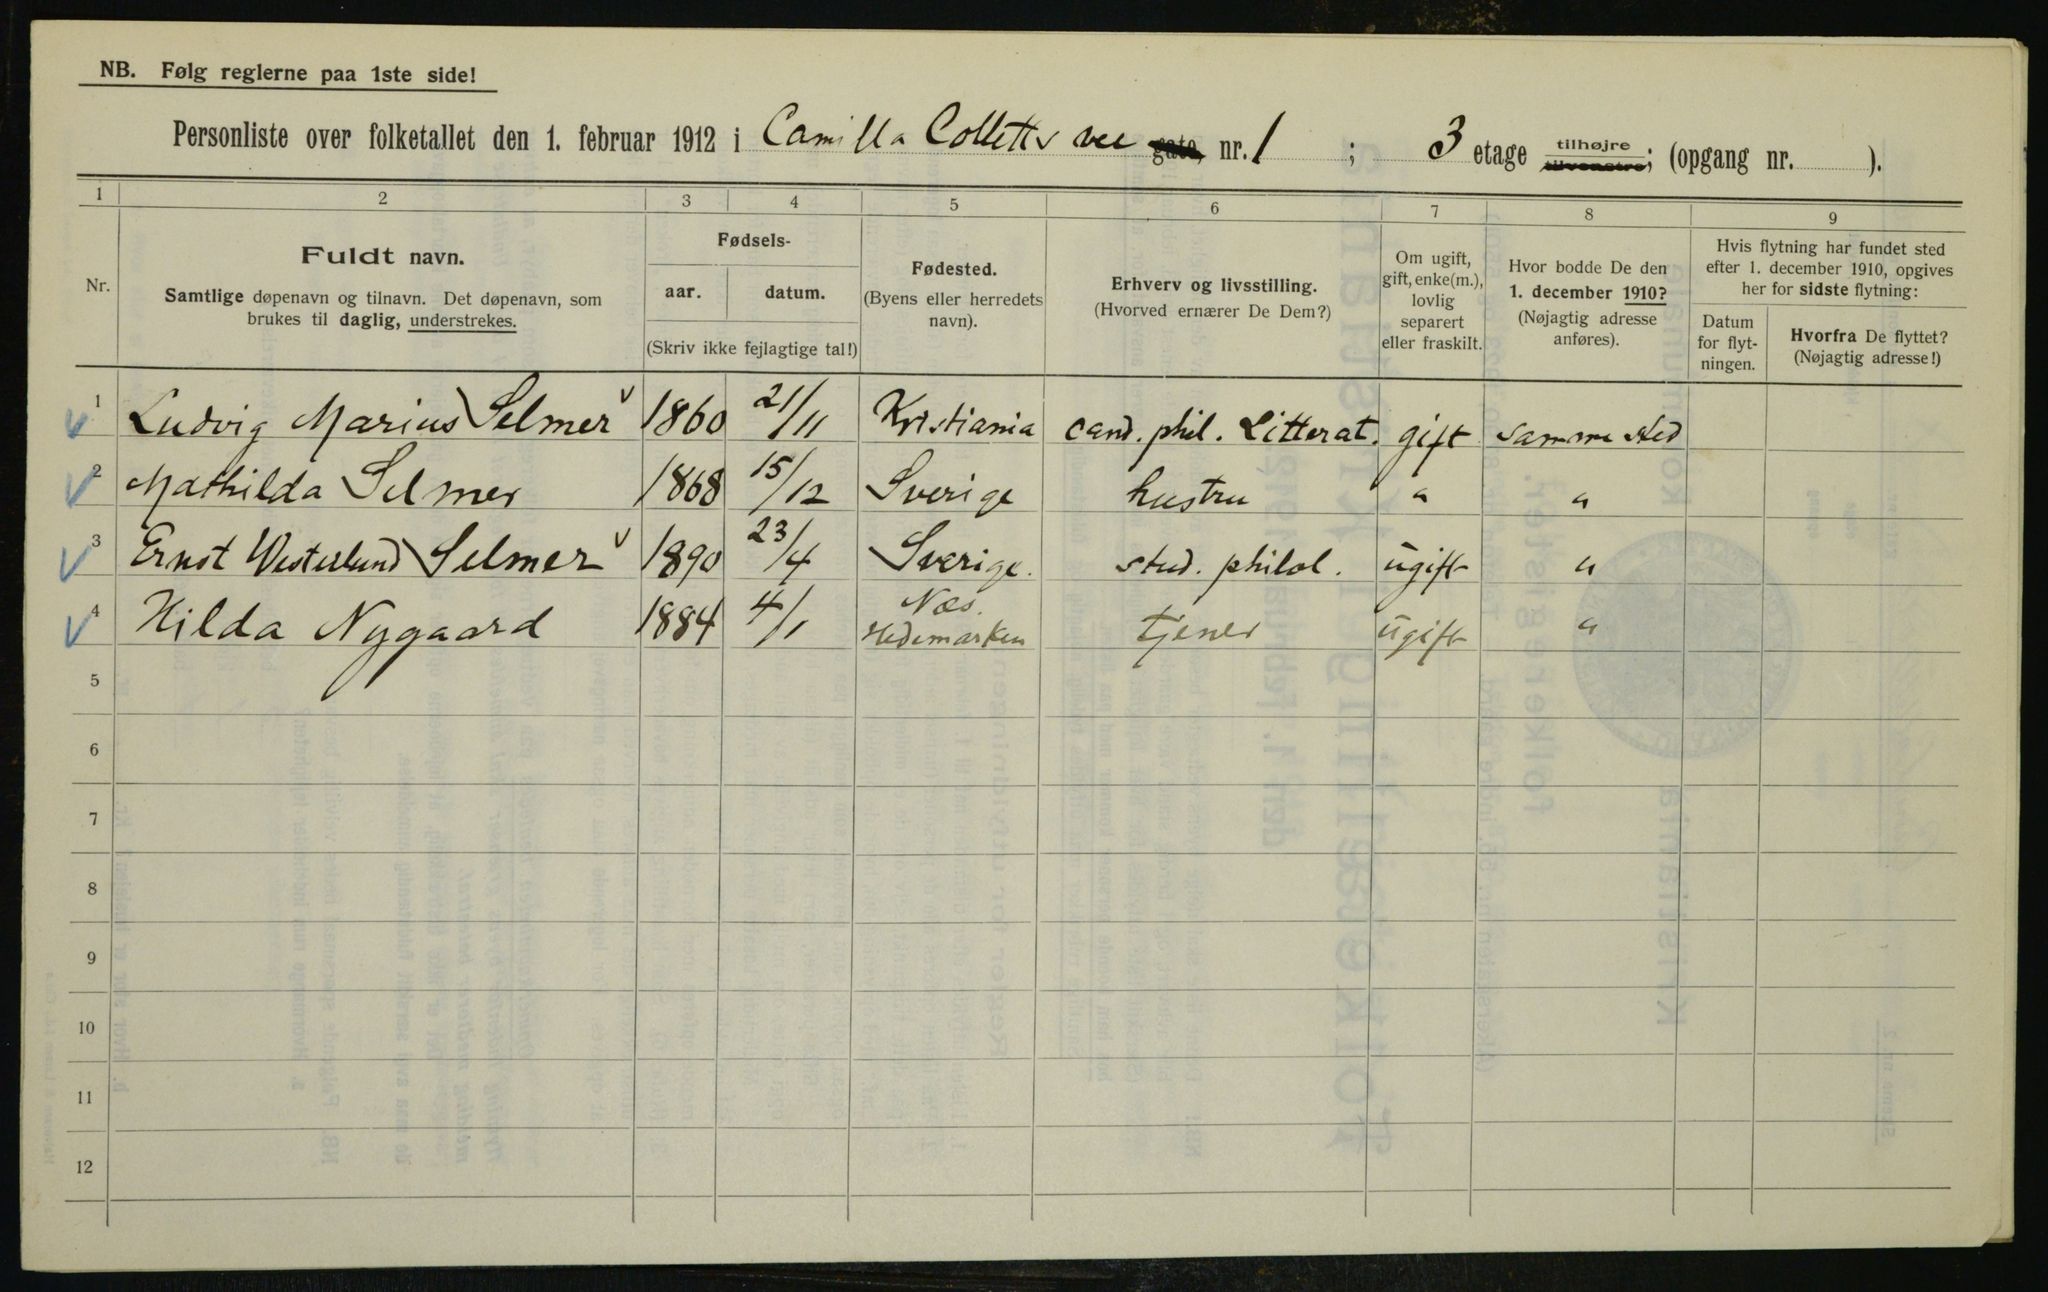 NB. Følg reglerne paa 1ste side!
Personliste over folketallet den 1. februar 1912 i Camilla Colletts vei gate, nr. 1 ; 3 etage tilhøjre tilvenstre; (opgang nr. ).
1 2 3 4 5 6 7 8 9
Nr.
Fuldt navn.
Samtlige døpenavn og tilnavn. Det døpenavn, som
brukes til daglig, understrekes.
Fødsels-
aar. datum.
(Skriv ikke fejlagtige tal!)
Fødested.
(Byens eller herredets
navn).
Erhverv og livsstilling.
(Hvorved ernærer De Dem?)
Om ugift,
gift, enke(m.),
lovlig
separert
eller fraskilt.
Hvor bodde De den
1. december 1910?
(Nøjagtig adresse
anføres).
Hvis flytning har fundet sted
efter 1. december 1910, opgives
her for sidste flytning:
Datum
for flyt-
ningen.
Hvorfra De flyttet?
(Nøjagtig adresse!)
1 Ludvig Marius Selmer 1860 21/11 Kristiania cand. phil. Litterat. gift samme sted
2 Mathilda Selmer 1868 15/12 Sverige hustru " "
3 Ernst Westerlund Selmer 1890 23/4 Sverige. stud. philol. ugift "
4 Hilda Nygaard 1884 4/1 Næs. Hedemarken tjener ugift "
5
6
7
8
9
10
11
12